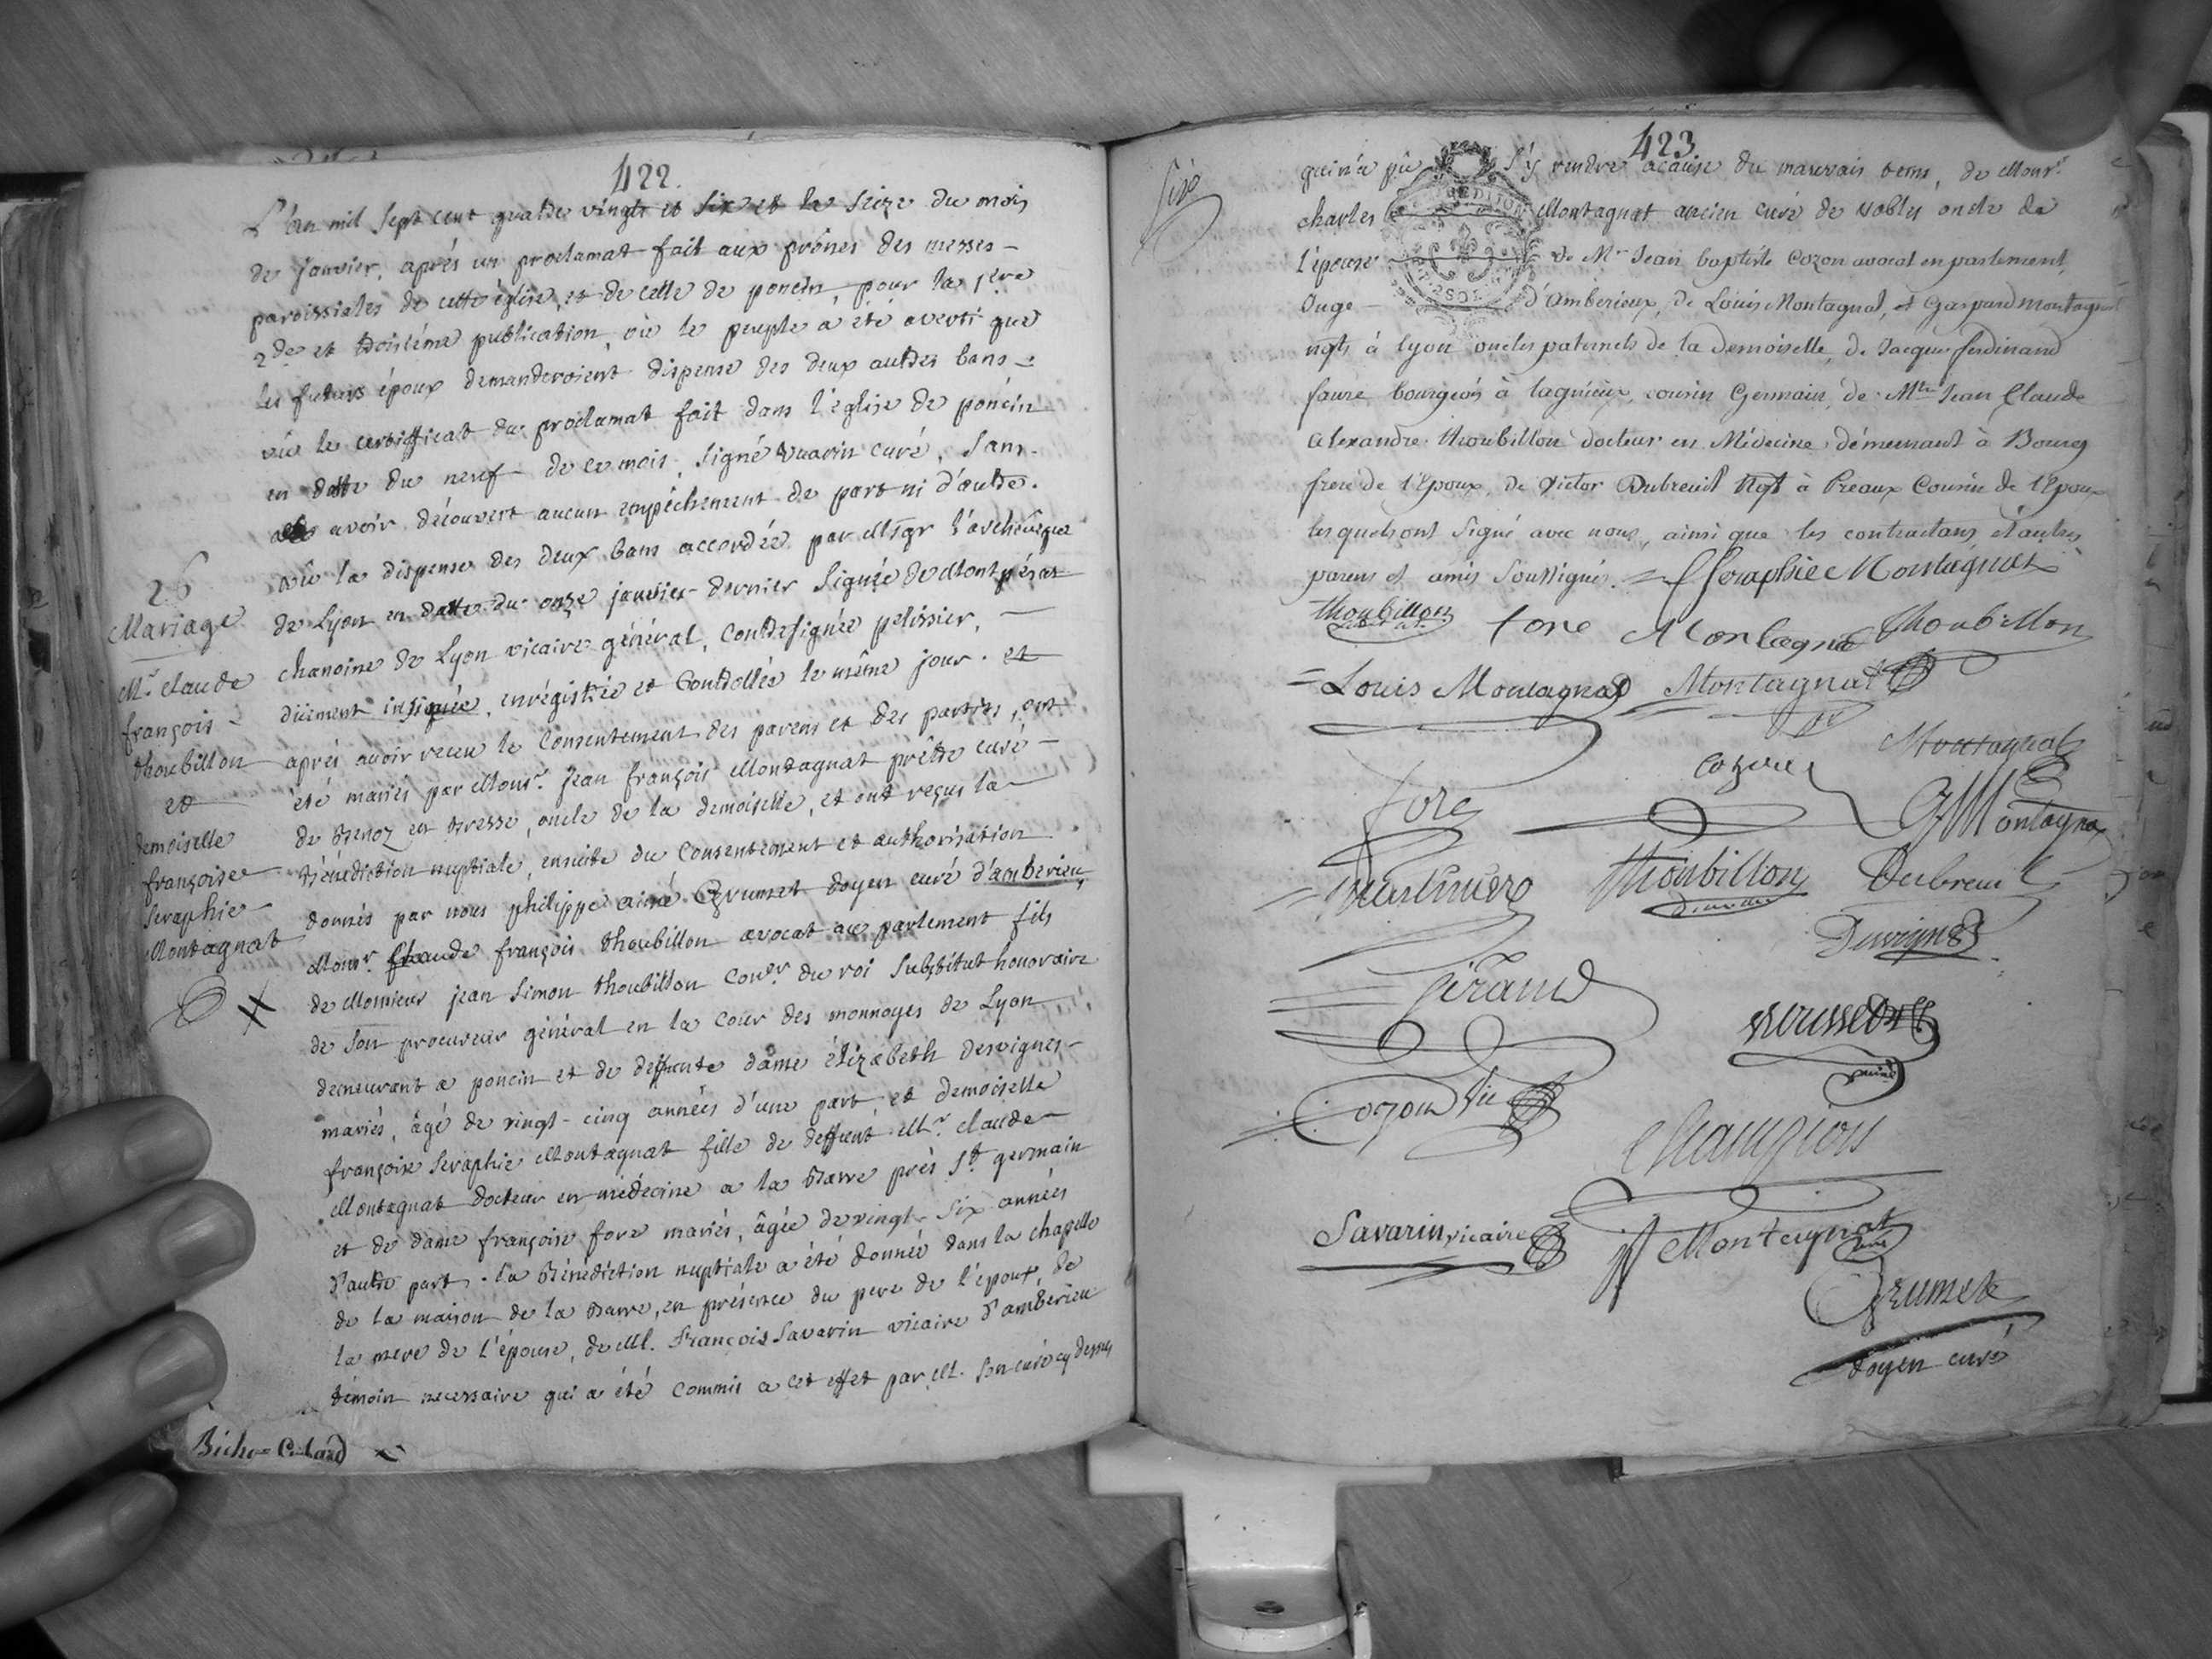 422.
L'an mil sept cent quatre vingts et six et le seize du mois
de janvier, aprés un proclamat fait aux prônes des messes
paroissiales de cette église, et de celle de poncin, pour la 1ere
2de et troisiéme publication, où le peuple a été averti que
les futurs époux demanderoient dispense des deux autres bans
vû le certifficat du proclamat fait dans l'église de poncin
en datte du neuf de ce mois, signé vuarin curé, sans
avoir découvert aucun empéchement de part ni d'autre.
vû la dispense des deux bans accordée par Msgr l'archevêque
de Lyon en datte du onze janvier dernier signée de Montpézat
chanoine de Lyon vicaire général, contresignée pelissier,
düement insinuée, enrégistrée et Controllée le même jour. et
aprés avoir receu le Consentement des parens et des parties, ont
été mariés par Monsr. jean françois Montagnat prêtre curé
de Benoz en Bresse, oncle de la demoiselle, et ont reçus la
Bénédiction nuptiale, ensuite du Consentement et authorisation
donnés par nous philippe aimé Grumet doyen curé d'amberieu
Monsr. Claude françois thoubillon avocat au parlement fils
de Monsieur jean Simon thoubillon Conser. du roi Substitut honoraire
de son procureur général en la Cour des monnoyes de Lyon
demeurant a poncin et de deffunte dame élizabeth desvignes
mariés, âgé de vingt-cinq années d'une part, et demoiselle
françoise Seraphie Montagnat fille de deffunt Mr. claude
Montagnat docteur en médecine a la Barre près St germain
et de dame françoise fore mariés, âgée de vingt-six années
d'autre part. la Bénédiction nuptiale a été donnée dans la chapelle
de la maison de la Barre, en présence du pere de l'époux, de
la mere de l'épouse, de M. François Savarin vicaire d'amberieu
témoin necessaire qui a été commis a cet effet par M. son curé cy dessus
26
Mariage
Mr. claude
françois
thoubillon
et
demoiselle
françoise
Seraphie
Montagnat
423
qui n'a pû s'y rendre acause du mauvais tems, de Monsr.
charles Montagnat ancien curé de nobles oncle de
l'épouse de Mr Jean baptiste Cozon avocat en parlement,
Juge d'Amberieux, de Louis Montagnat, et Gaspard Montagnat
ngts à lyon oncles paternels de la demoiselle, de Jacques ferdinand
faure bourgeois à lagnieux, cousin Germain, de Mtre Jean Claude
Alexandre thoubillon docteur en Médecine démeurant à Bourg
frere de l'Epoux, de Victor Dubreuil Ngt à Preaux Cousin de l'Epoux
lesquels ont signé avec nous, ainsi que les contractans et autres
parens et amis soussignés. f Seraphie Montagnat
thoubillon fore Montagnat Thoubillon
Louis Montagnat Montagnat
Cozon Montagnat
fore GMontagnat
Thoubillon Dubreuil
Desvignes
Giraud
Cozon
Savarin vicaire jf Montagnat
curé
Grumet
doyen curé